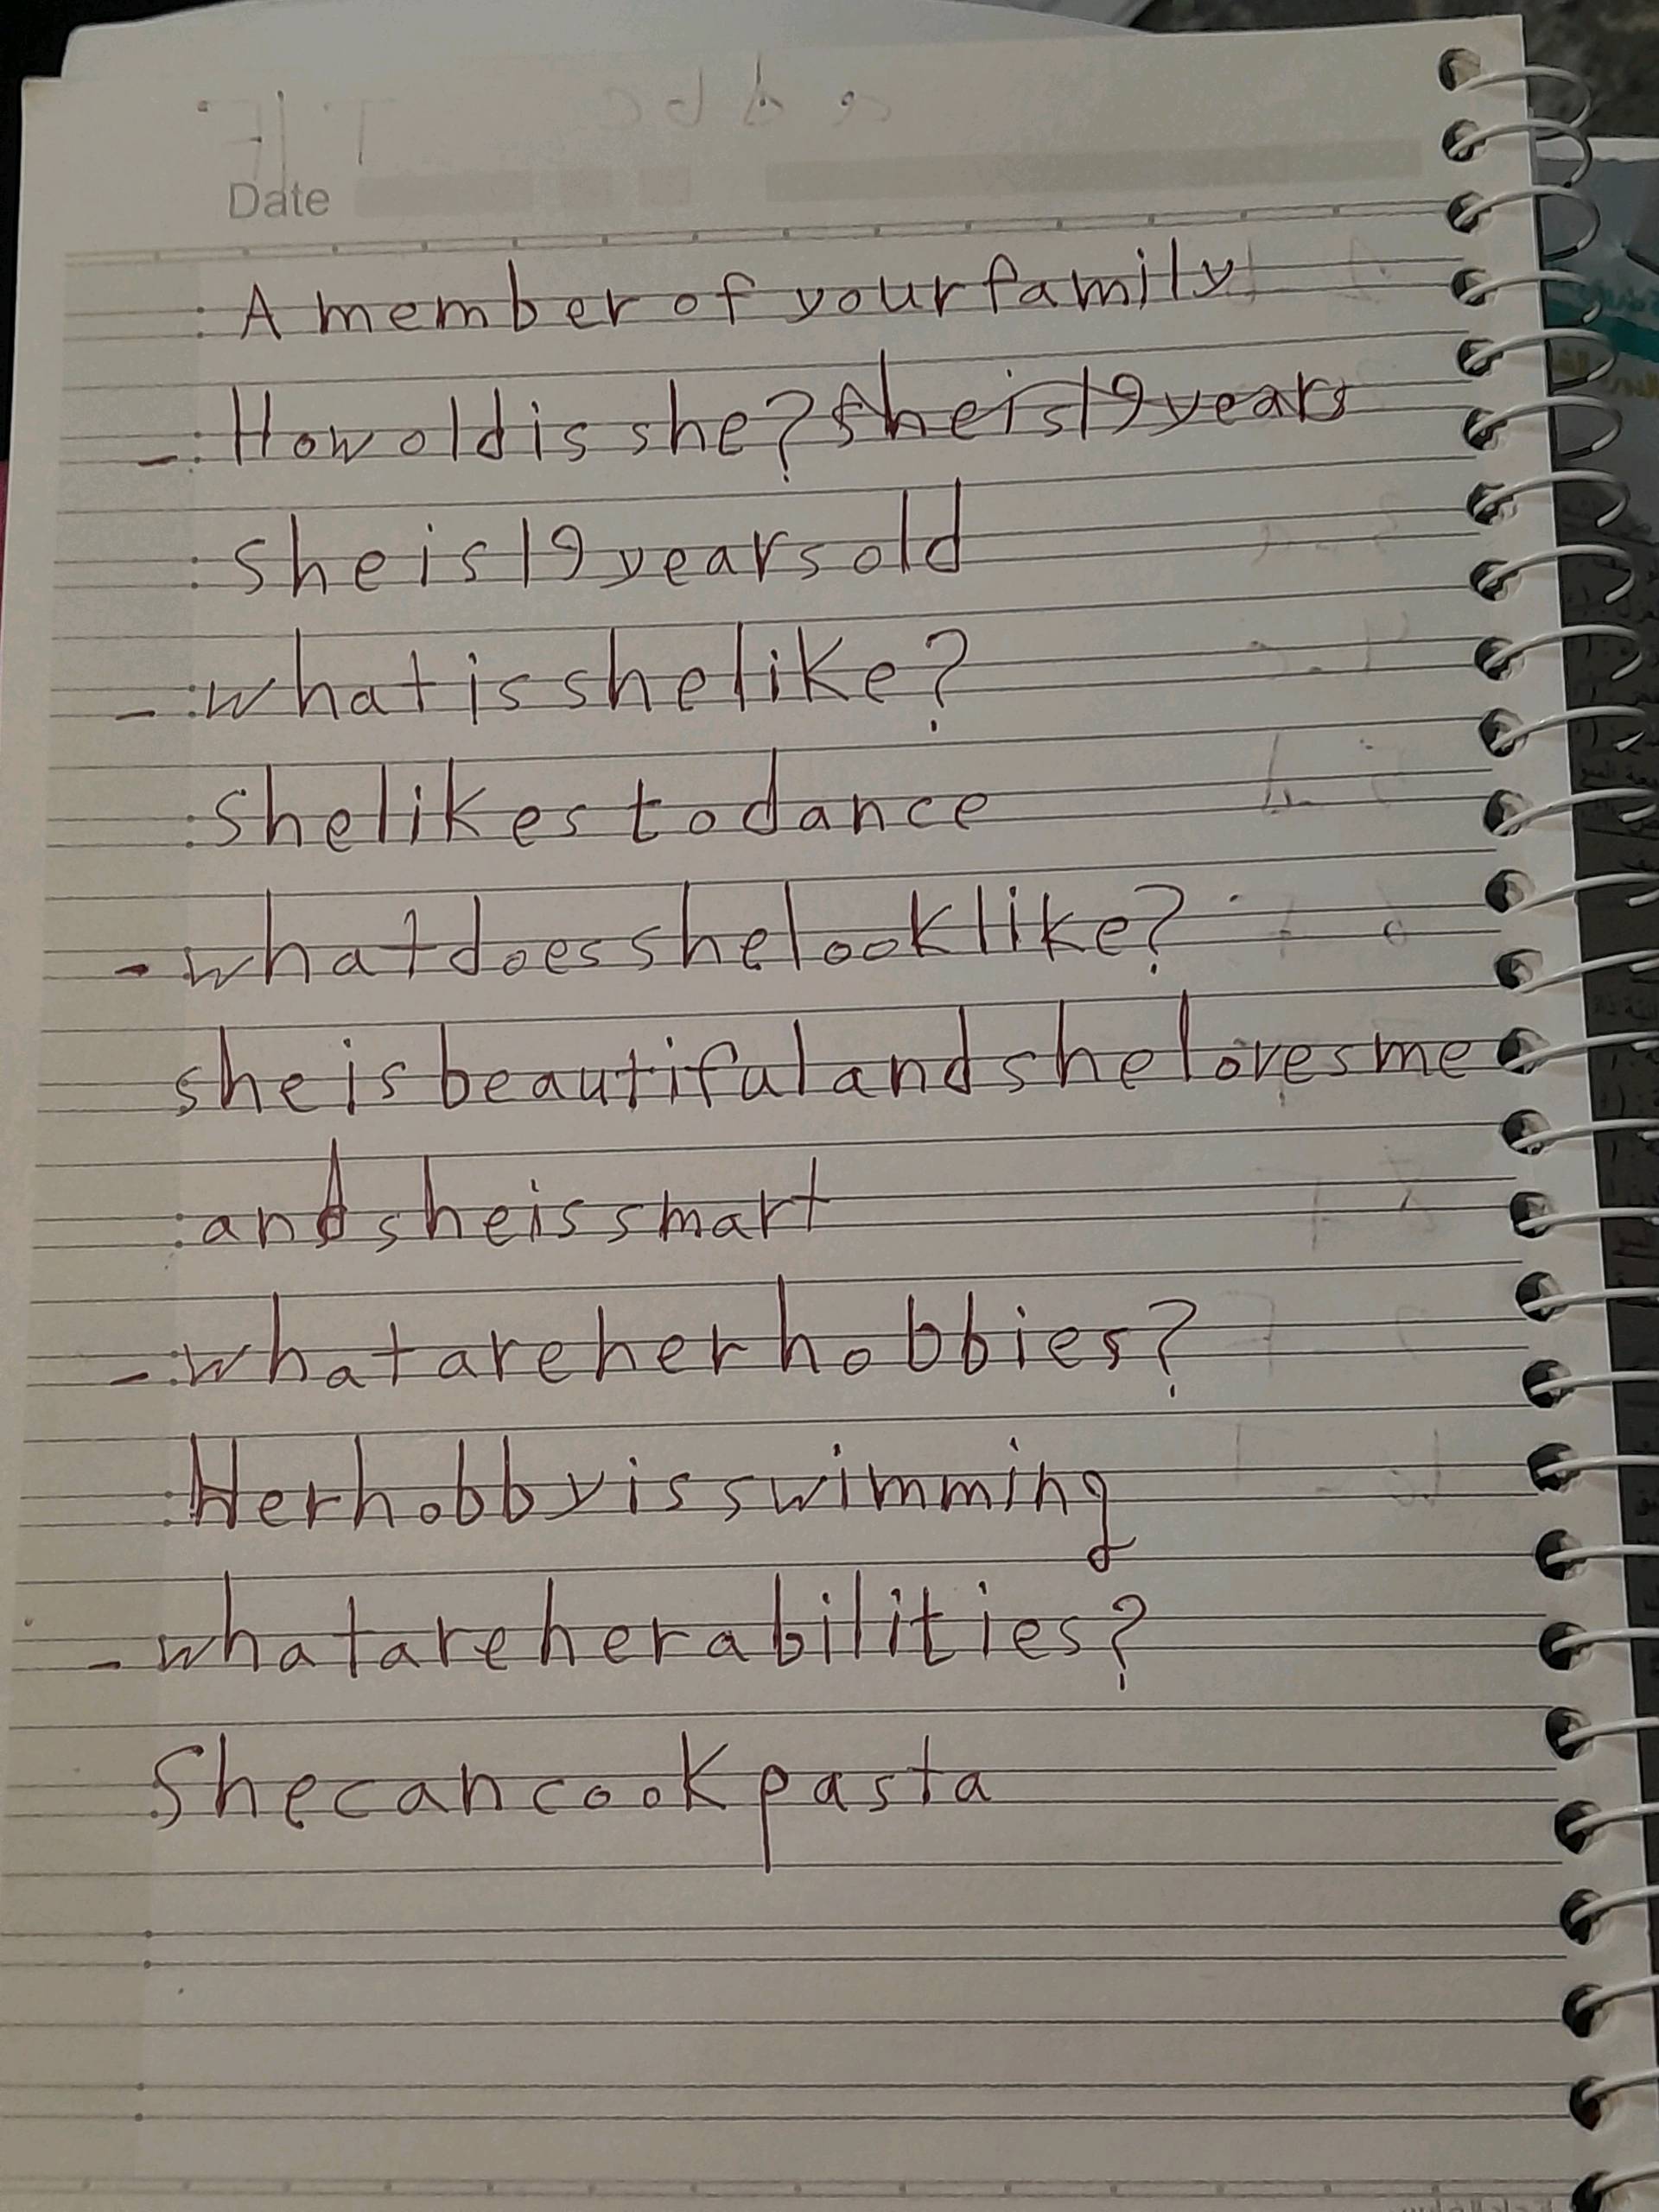 Date
A member of your family
- How old is she? she is 19 years
she is 19 years old
- what is she like?
she likes to dance
- what does she look like?
she is beautiful and she loves me
and she is smart
- what are her hobbies?
Her hobby is swimming
- what are her abilities?
She can cook pasta